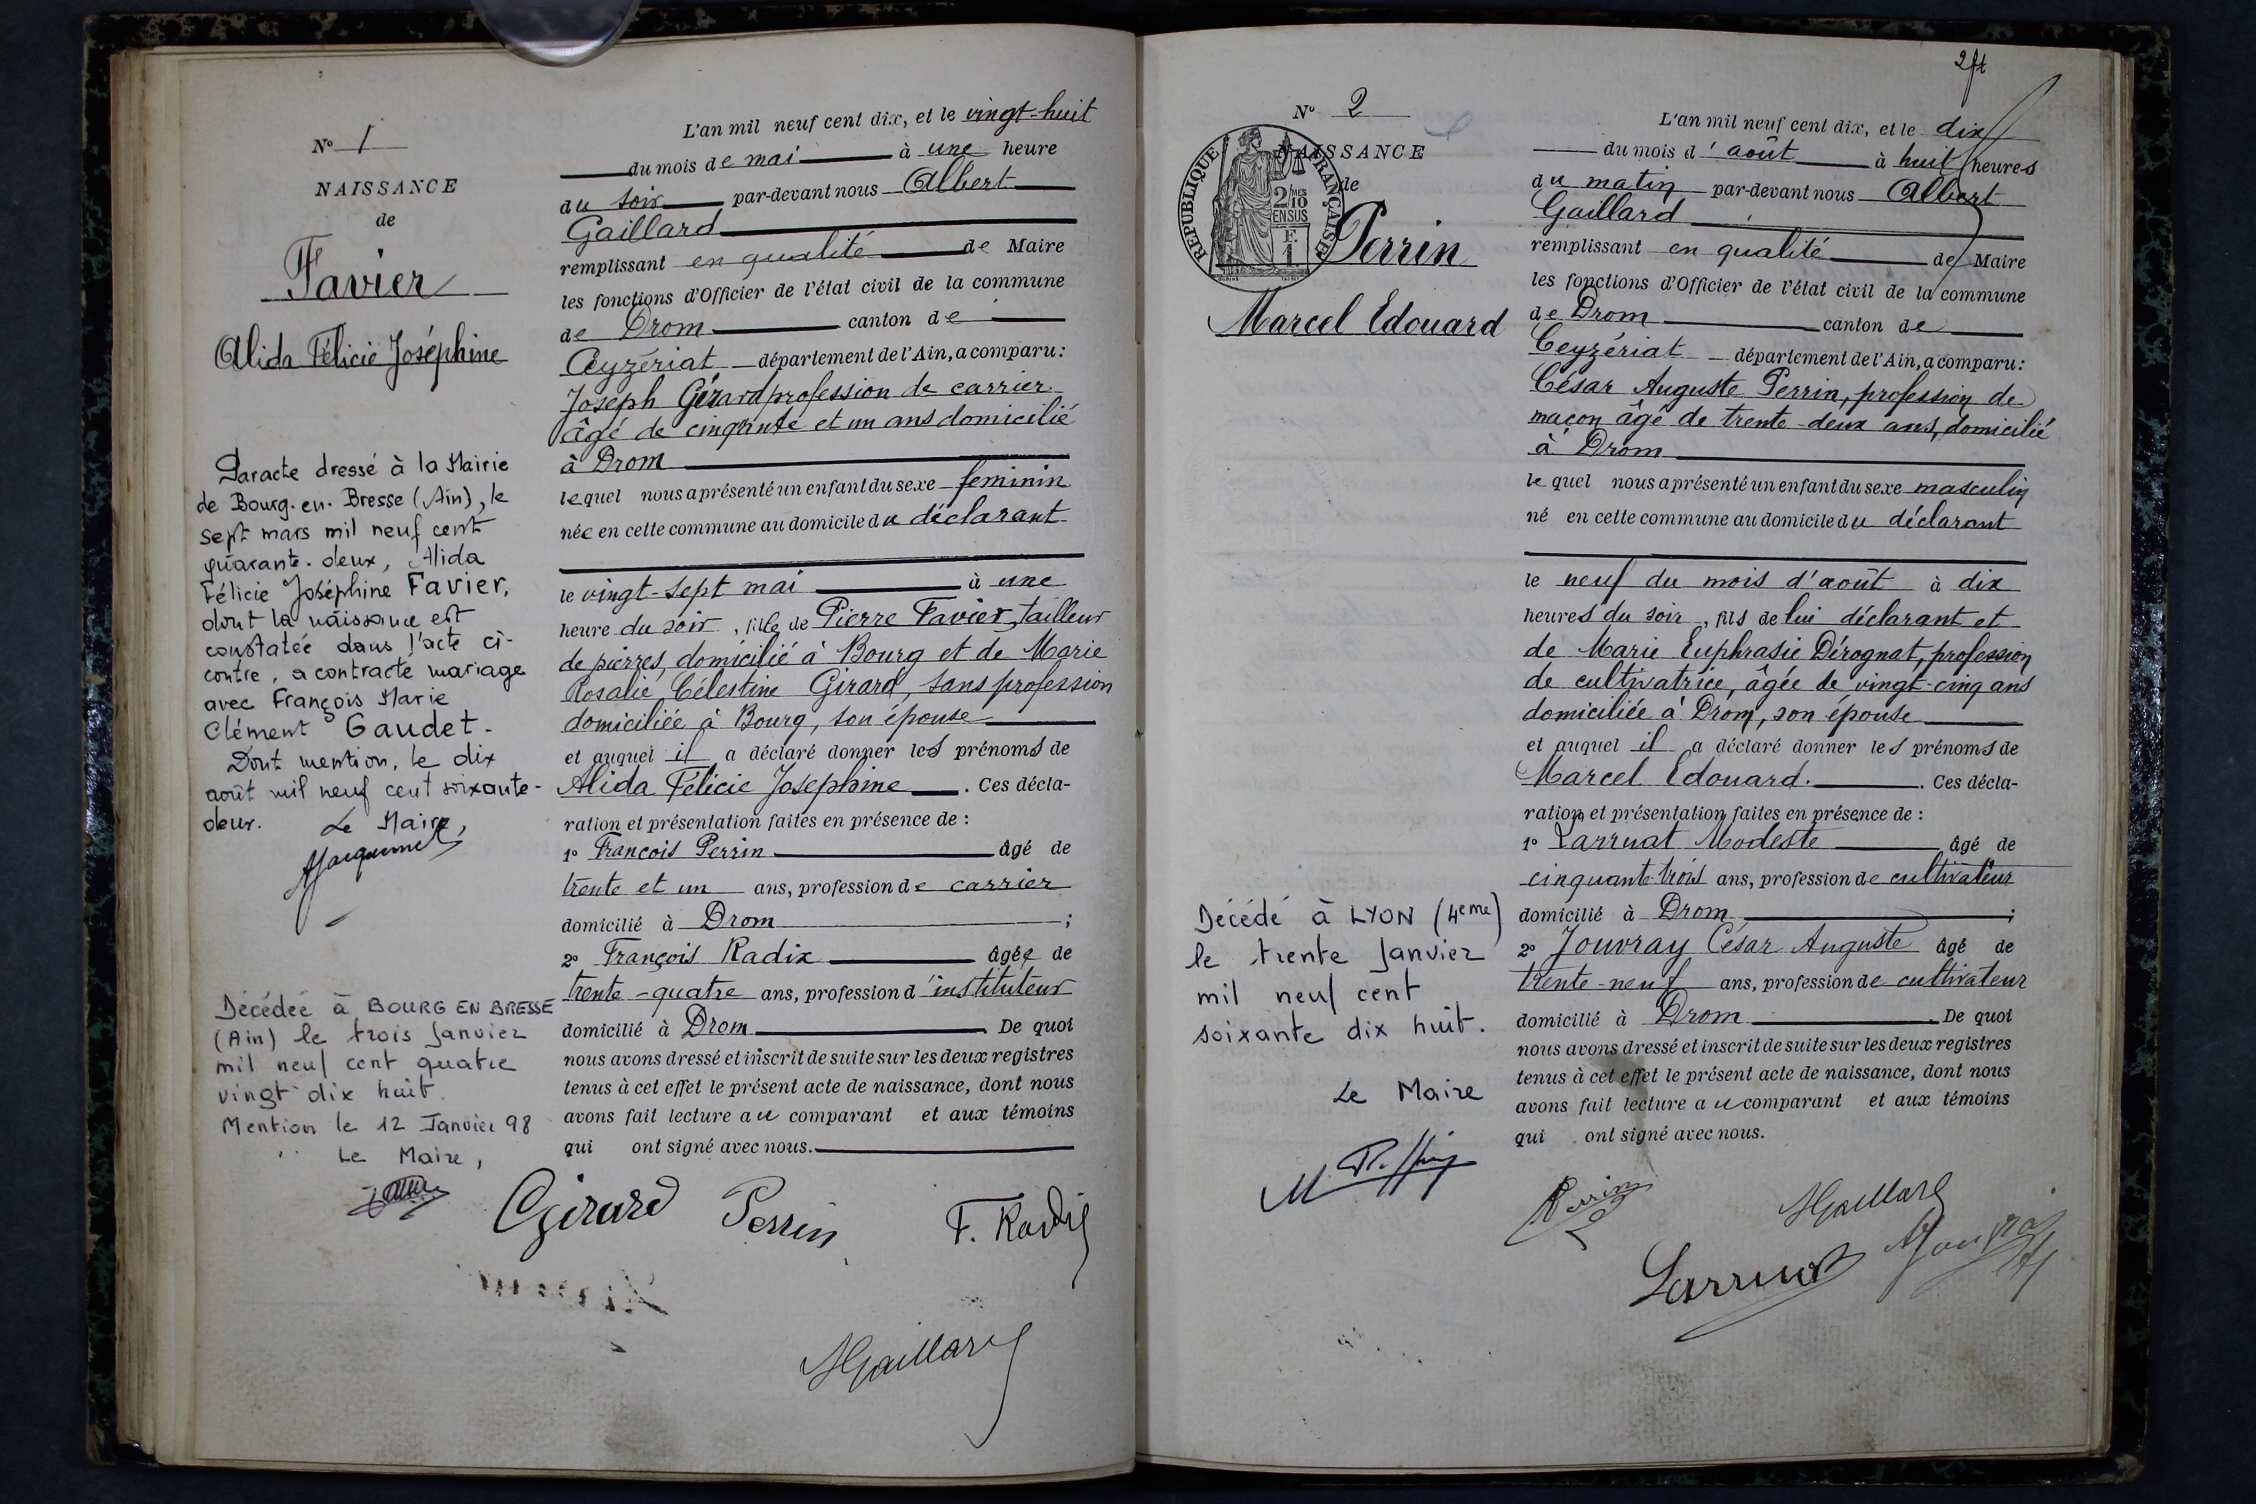 N° 1
NAISSANCE
de
Favier
Alida Félicie Joséphine
Par acte dressé à la Mairie
de Bourg-en-Bresse (Ain), le
sept mars mil neuf cent
quarante-deux, Alida
Félicie Joséphine Favier,
dont la naissance est
constatée dans l'acte ci-
contre, a contracté mariage
avec François Marie
Clément Gaudet.
Dont mention, le dix
août mil neuf cent soixante-
deux. Le Maire,
Décédée à BOURG EN BRESSE
(Ain) le trois Janvier
mil neuf cent quatre
vingt dix huit.
Mention le 12 Janvier 98
Le Maire,
L'an mil neuf cent dix, et le vingt-huit
du mois de mai à une heure
du soir par-devant nous Albert
Gaillard
remplissant en qualité de Maire
les fonctions d'Officier de l'état civil de la commune
de Drom canton de
Ceyzériat département de l'Ain, a comparu:
Joseph Girard profession de carrier
âgé de cinquante et un ans domicilié
à Drom
lequel nous a présenté un enfant du sexe feminin
née en cette commune au domicile du déclarant
le vingt-sept mai à une
heure du soir, fille de Pierre Favier, tailleur
de pierres, domicilié à Bourg et de Marie
Rosalie Célestine Girard, sans profession
domiciliée à Bourg, son épouse
et auquel il a déclaré donner les prénoms de
Alida Félicie Josephine. Ces décla-
ration et présentation faites en présence de:
1° François Perrin âgé de
trente et un ans, profession de carrier
domicilié à Drom;
2° François Radix âgée de
trente-quatre ans, profession d'instituteur
domicilié à Drom De quoi
nous avons dressé et inscrit de suite sur les deux registres
tenus à cet effet le présent acte de naissance, dont nous
avons fait lecture au comparant et aux témoins
qui ont signé avec nous.
Girard Perrin F. Radix
AGaillard
2 ft
N° 2
NAISSANCE
de
RÉPUBLIQUE FRANÇAISE
2/10 MES
EN SUS
F.
1
Perrin
Marcel Edouard
Décédé à LYON (4eme)
le trente Janvier
mil neuf cent
soixante dix huit.
Le Maire
L'an mil neuf cent dix, et le dix
du mois d'août à huit heures
du matin par-devant nous Albert
Gaillard
remplissant en qualité de Maire
les fonctions d'Officier de l'état civil de la commune
de Drom canton de
Ceyzériat département de l'Ain, a comparu:
César Auguste Perrin, profession de
maçon âgé de trente-deux ans, domicilié
à Drom
lequel nous a présenté un enfant du sexe masculin
né en cette commune au domicile du déclarant
le neuf du mois d'août à dix
heures du soir, fils de lui déclarant et
de Marie Euphrasie Dérognat, profession
de cultivatrice, âgée de vingt-cinq ans
domiciliée à Drom, son épouse
et auquel il a déclaré donner les prénoms de
Marcel Edouard. Ces décla-
ration et présentation faites en présence de:
1° Larruat Modeste âgé de
cinquante-trois ans, profession de cultivateur
domicilié à Drom;
2° Jouvray César Auguste âgé de
trente-neuf ans, profession de cultivateur
domicilié à Drom. De quoi
nous avons dressé et inscrit de suite sur les deux registres
tenus à cet effet le présent acte de naissance, dont nous
avons fait lecture au comparant et aux témoins
qui ont signé avec nous.
Perrin AGaillard
Larruat Jouvray